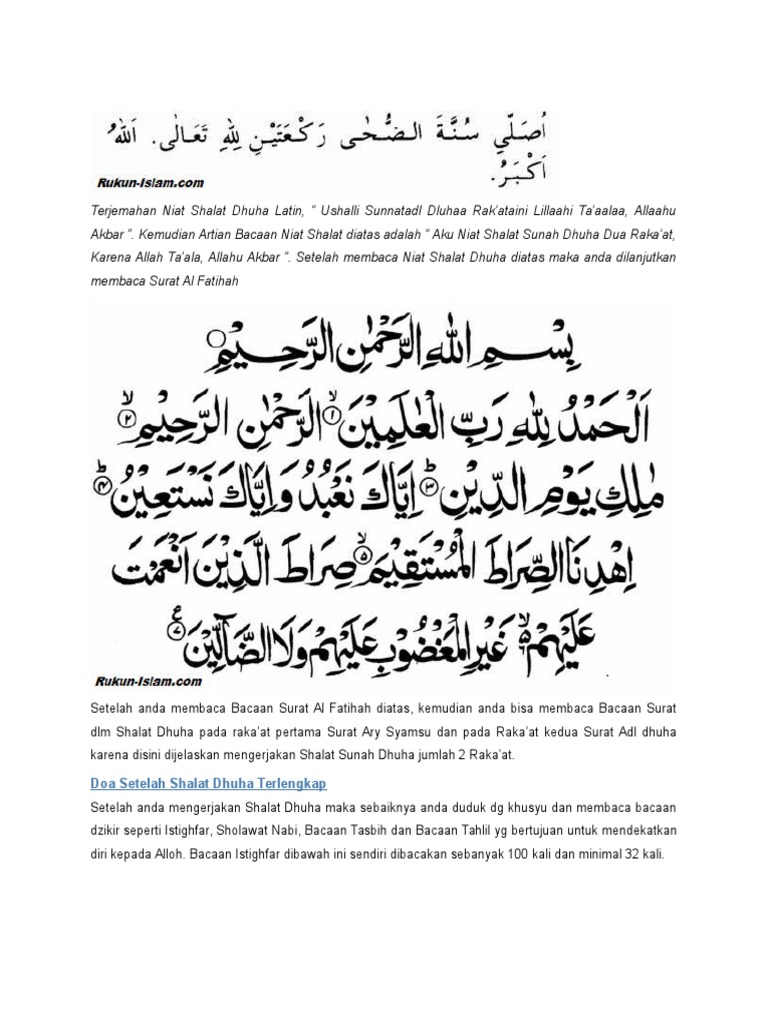 اُصَلِّي سُنَّةَ الضُّحٰى رَكْعَتَيْنِ لِلّٰهِ تَعَالٰى. اَللهُ
اَكْبَرُ.
Rukun-Islam.com
Terjemahan Niat Shalat Dhuha Latin, “ Ushalli Sunnatadl Dluhaa Rak’ataini Lillaahi Ta’aalaa, Allaahu
Akbar ”. Kemudian Artian Bacaan Niat Shalat diatas adalah ” Aku Niat Shalat Sunah Dhuha Dua Raka’at,
Karena Allah Ta’ala, Allahu Akbar ”. Setelah membaca Niat Shalat Dhuha diatas maka anda dilanjutkan
membaca Surat Al Fatihah
بِسْمِ اللهِ الرَّحْمٰنِ الرَّحِيْمِ
اَلْحَمْدُ لِلّٰهِ رَبِّ الْعٰلَمِيْنَ ۙ﴿۱﴾ الرَّحْمٰنِ الرَّحِيْمِ ۙ﴿۲﴾
مٰلِكِ يَوْمِ الدِّيْنِ ؕ﴿۳﴾ اِيَّاكَ نَعْبُدُ وَاِيَّاكَ نَسْتَعِيْنُ ؕ﴿۴﴾
اِهْدِنَا الصِّرَاطَ الْمُسْتَقِيْمَ ۙ﴿۵﴾ صِرَاطَ الَّذِيْنَ اَنْعَمْتَ
عَلَيْهِمْ ۙ۬ غَيْرِ الْمَغْضُوْبِ عَلَيْهِمْ وَلَا الضَّآلِّيْنَ ﴿۷﴾ ع
Rukun-Islam.com
Setelah anda membaca Bacaan Surat Al Fatihah diatas, kemudian anda bisa membaca Bacaan Surat
dlm Shalat Dhuha pada raka’at pertama Surat Ary Syamsu dan pada Raka’at kedua Surat Adl dhuha
karena disini dijelaskan mengerjakan Shalat Sunah Dhuha jumlah 2 Raka’at.
Doa Setelah Shalat Dhuha Terlengkap
Setelah anda mengerjakan Shalat Dhuha maka sebaiknya anda duduk dg khusyu dan membaca bacaan
dzikir seperti Istighfar, Sholawat Nabi, Bacaan Tasbih dan Bacaan Tahlil yg bertujuan untuk mendekatkan
diri kepada Alloh. Bacaan Istighfar dibawah ini sendiri dibacakan sebanyak 100 kali dan minimal 32 kali.